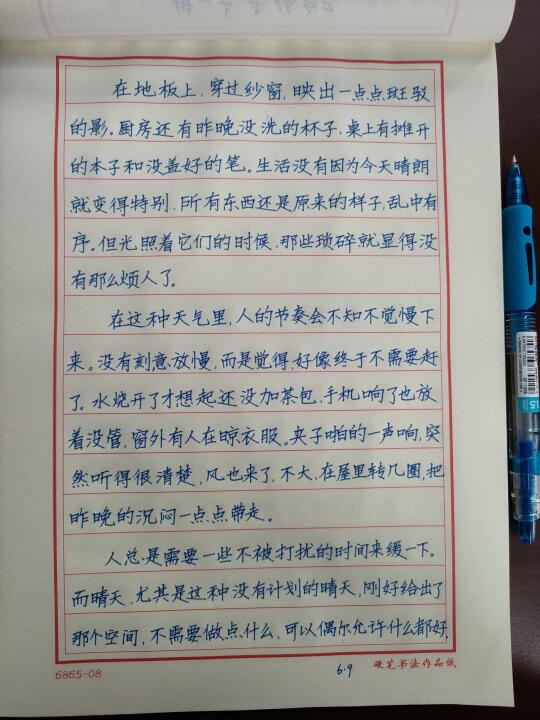 在地板上，穿过纱窗，映出一点点斑驳
的影。厨房还有昨晚没洗的杯子，桌上有摊开
的本子和没盖好的笔。生活没有因为今天晴朗
就变得特别，所有东西还是原来的样子，乱中有
序。但光照着它们的时候，那些琐碎就显得没
有那么烦人了。
在这种天气里，人的节奏会不知不觉慢下
来。没有刻意放慢，而是觉得，好像终于不需要赶
了。水烧开了才想起还没加茶包，手机响了也放
着没管，窗外有人在晾衣服。夹子啪的一声响，突
然听得很清楚，风也来了，不大，在屋里转几圈，把
昨晚的沉闷一点点带走。
人总是需要一些不被打扰的时间来缓一下。
而晴天，尤其是这种没有计划的晴天，刚好给出了
那个空间，不需要做点什么，可以偶尔允许什么都好，
6865-08
6.9
硬笔书法作品纸
1.5